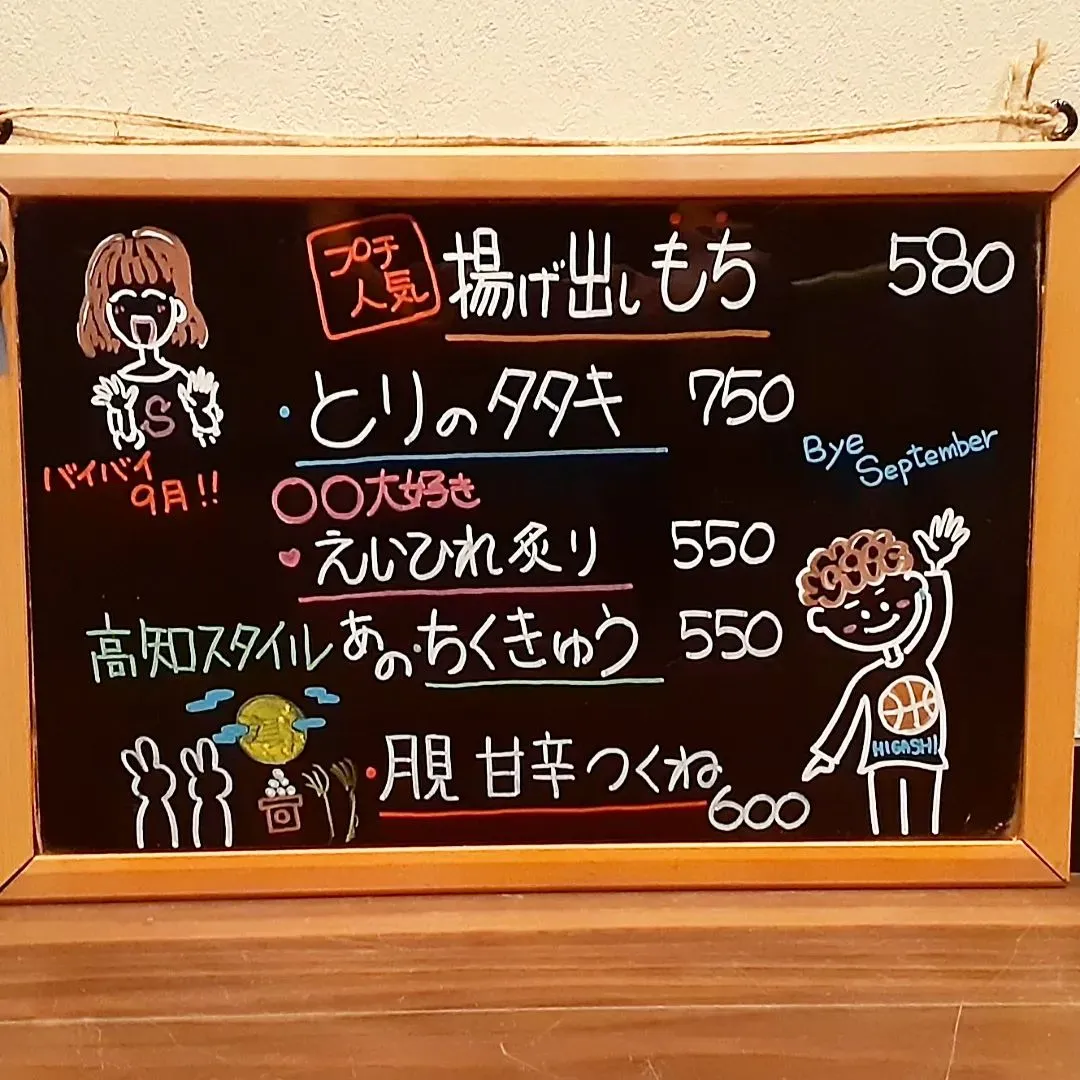 プチ人気 揚げ出しもち 580
・とりのタタキ 750
バイバイ
9月!!
S
Bye
September
〇〇大好き
♥えいひれ炙り 550
高知スタイル あの・ちくきゅう 550
HIGASHI
・月見 甘辛つくね 600